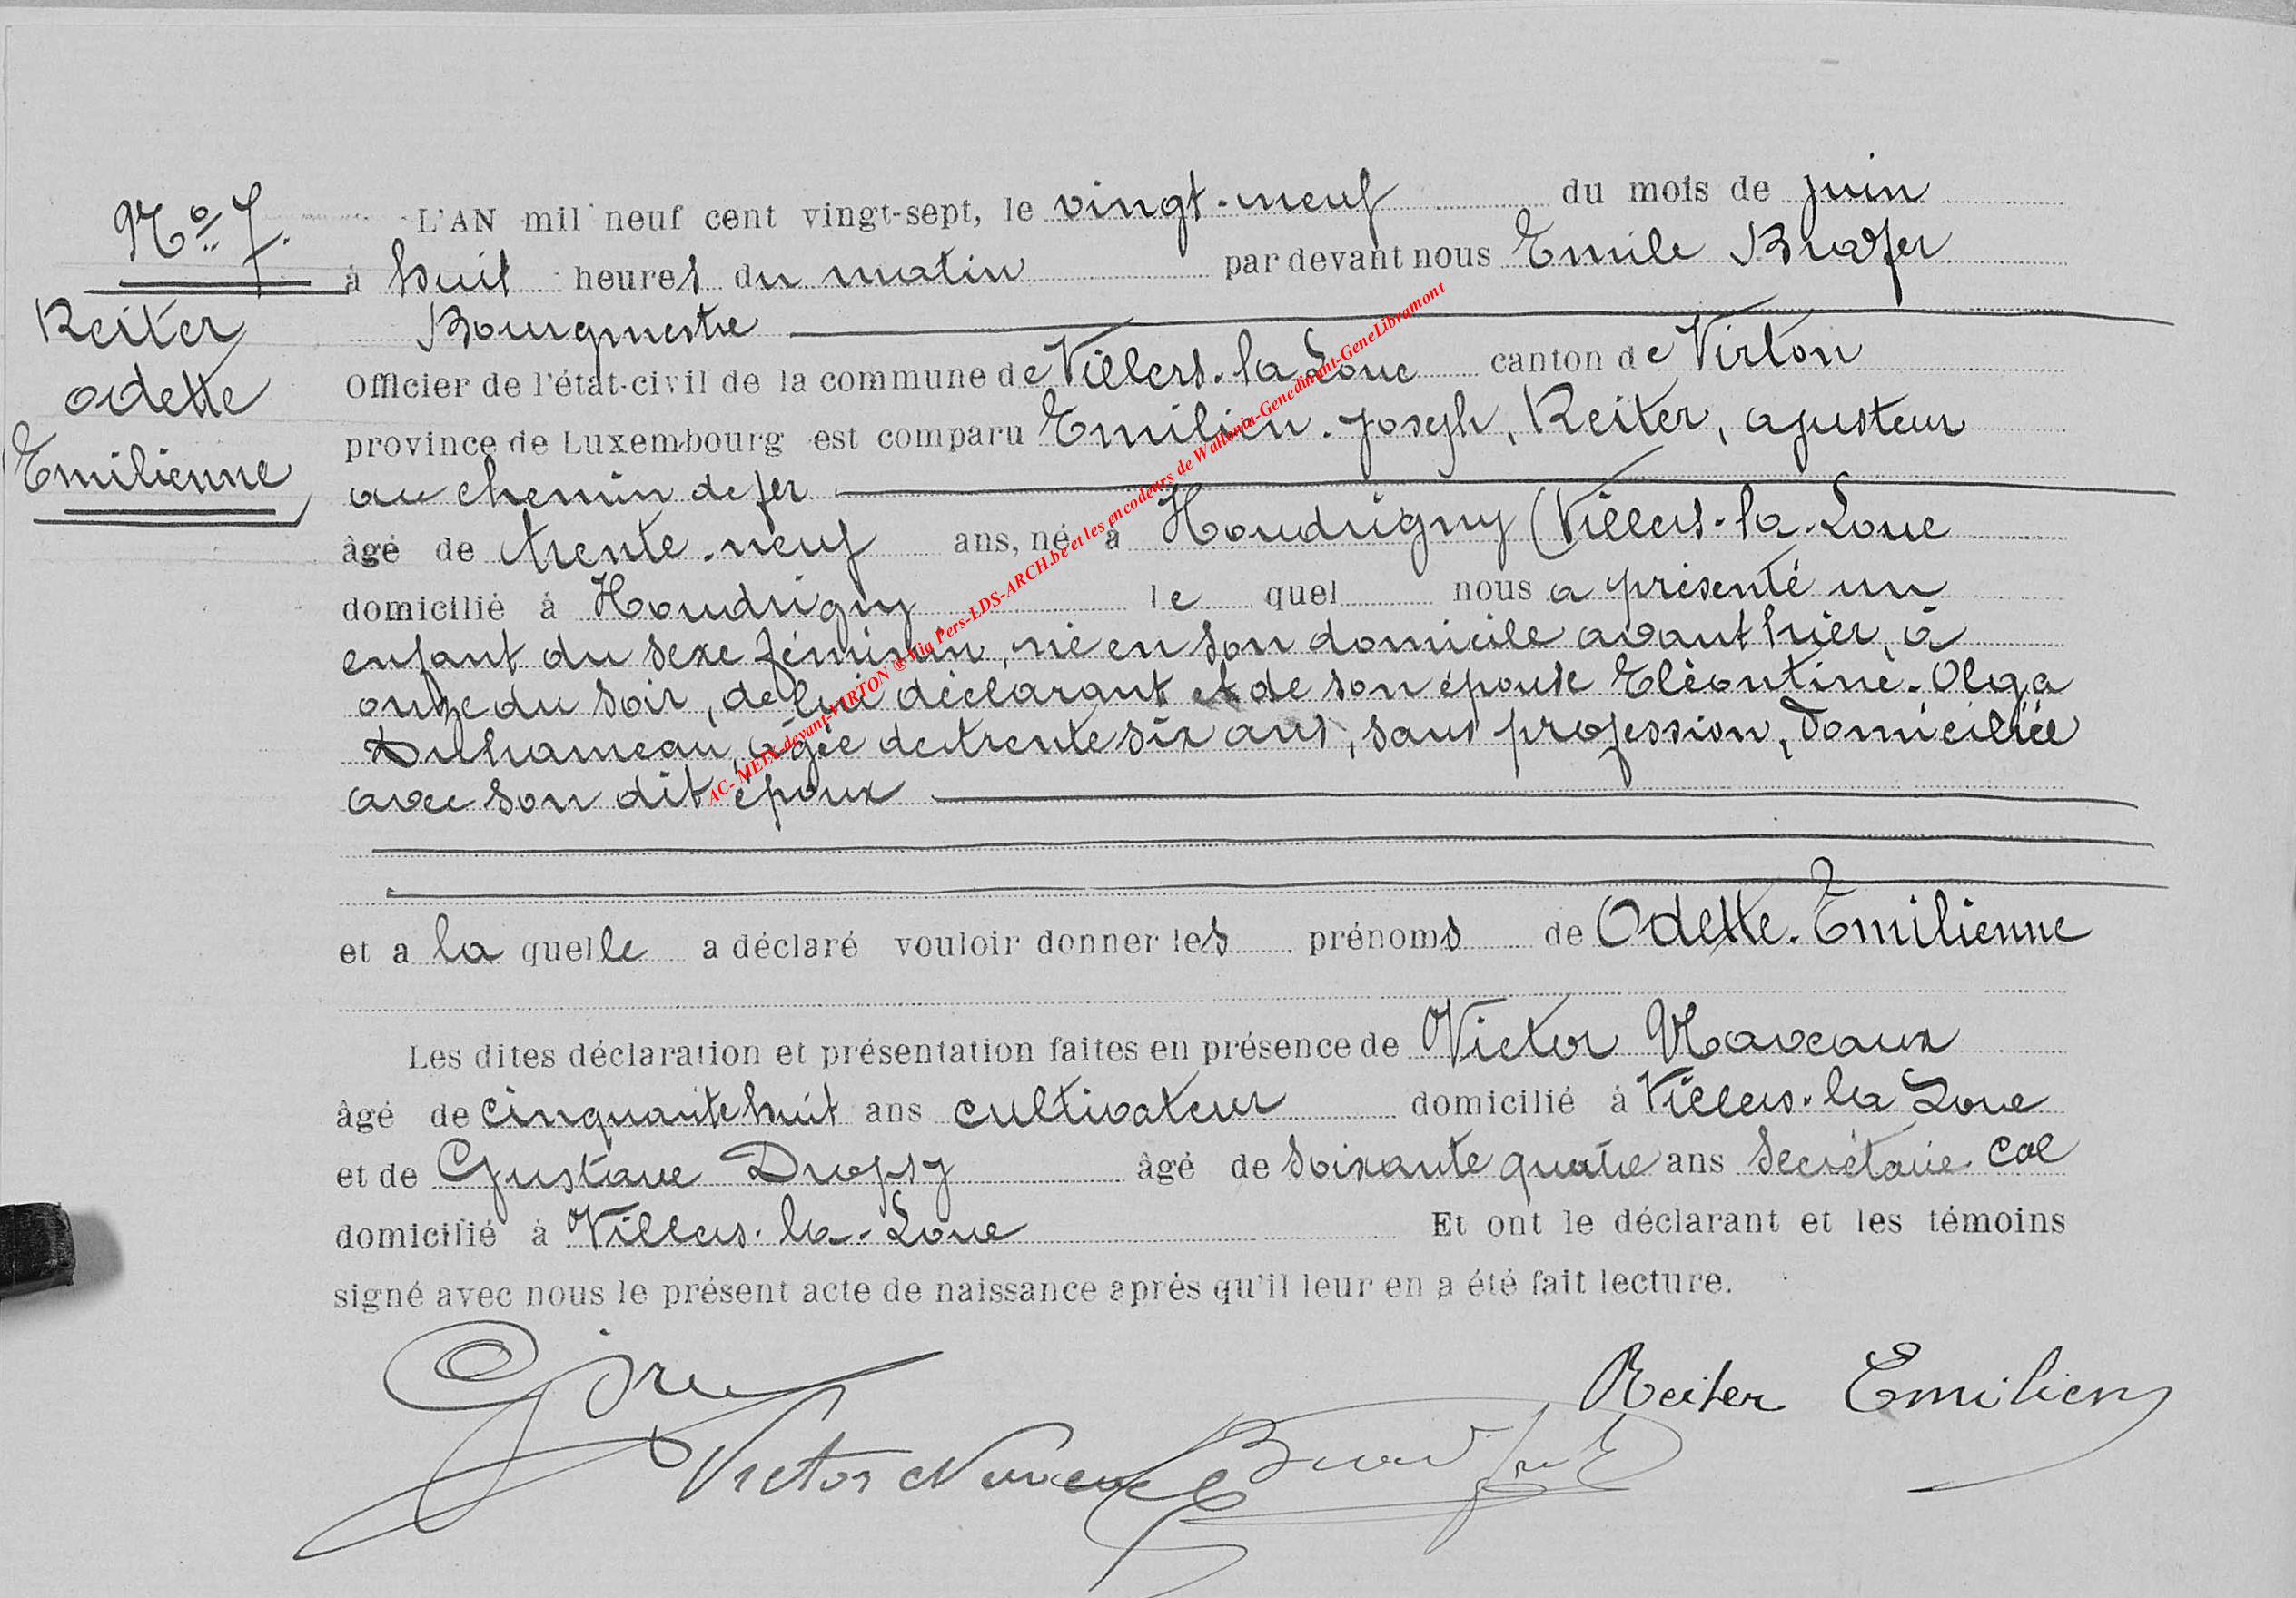 No 7.
Reiter
Odette
Emilienne
L'AN mil neuf cent vingt-sept, le vingt-neuf du mois de juin
à huit heures du matin par devant nous Emile
Bourgmestre
Officier de l'état-civil de la commune de Villers-la-Loue canton de Virton
province de Luxembourg est comparu Emilien-Joseph, Reiter, ajusteur
au chemin de fer
âgé de trente-neuf ans, né à Houdrigny (Villers-la-Loue
domicilié à Houdrigny le quel nous a présenté un
enfant du sexe féminin, né en son domicile avant hier, à
onze du soir, de lui déclarant et de son épouse Eléontine-Olga
Duhameau, âgée de trente six ans, sans profession, domiciliée
avec son dit époux
et a la quelle a déclaré vouloir donner les prénoms de Odette-Emilienne
Les dites déclaration et présentation faites en présence de Victor Naveaux
âgé de cinquante huit ans cultivateur domicilié à Villers-la Loue
et de Gustave Dropsy âgé de soixante quatre ans secrétaire cal
domicilié à Villers-la-Loue Et ont le déclarant et les témoins
signé avec nous le présent acte de naissance après qu'il leur en a été fait lecture.
Reiter Emilien
Victor
AC- MEIX-devant-VIRTON ® Via Pers-LDS-ARCH.be et les encodeurs de Wallonia-Genedinant-GeneLibramont